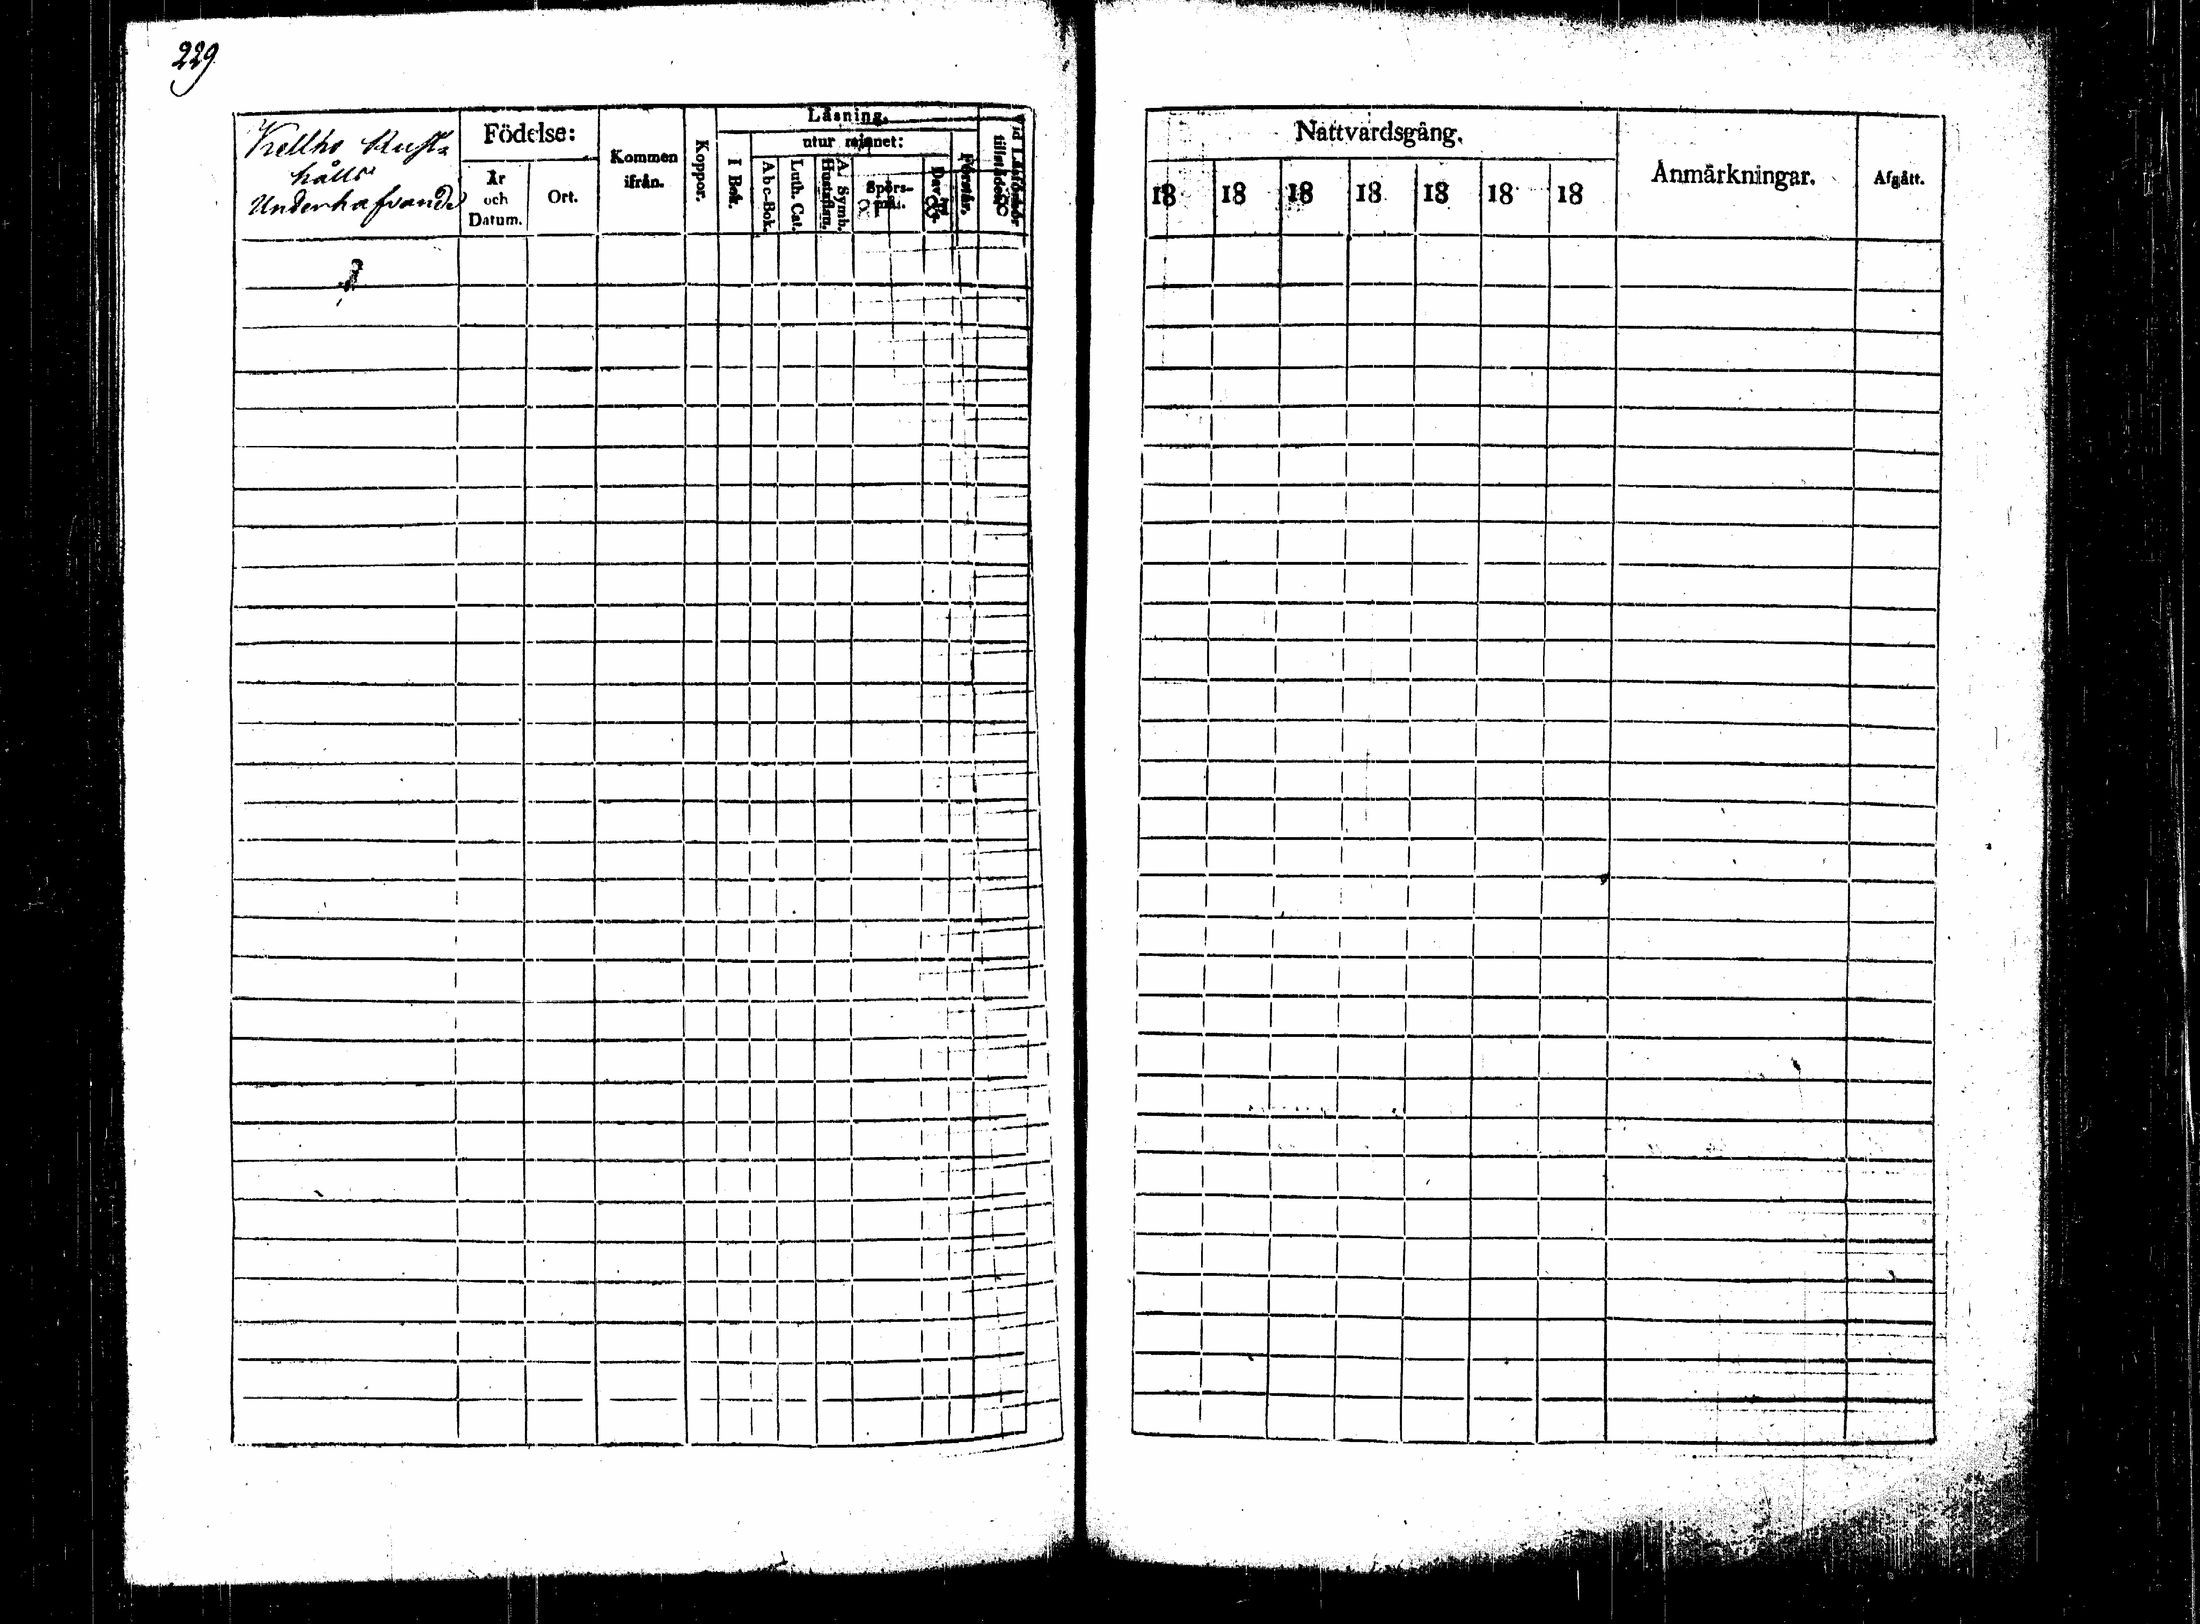 229
Vrellho Rust-
hålls
Underhafvande
Födelse:
År
och
Datum.
Ort.
Kommen
ifrån.
Koppor.
Läsning.
utur minnet:
I Bok.
Abc-Bok.
Luth. Cat.
A. Symb.
Hustaflan.
Spörs-
mål.
Dav. Ps.
Förstår.
Vid Läsförhör
tillstädes
Nattvardsgång.
18 18 18 18 18 18 18
Anmärkningar.
Afgått.